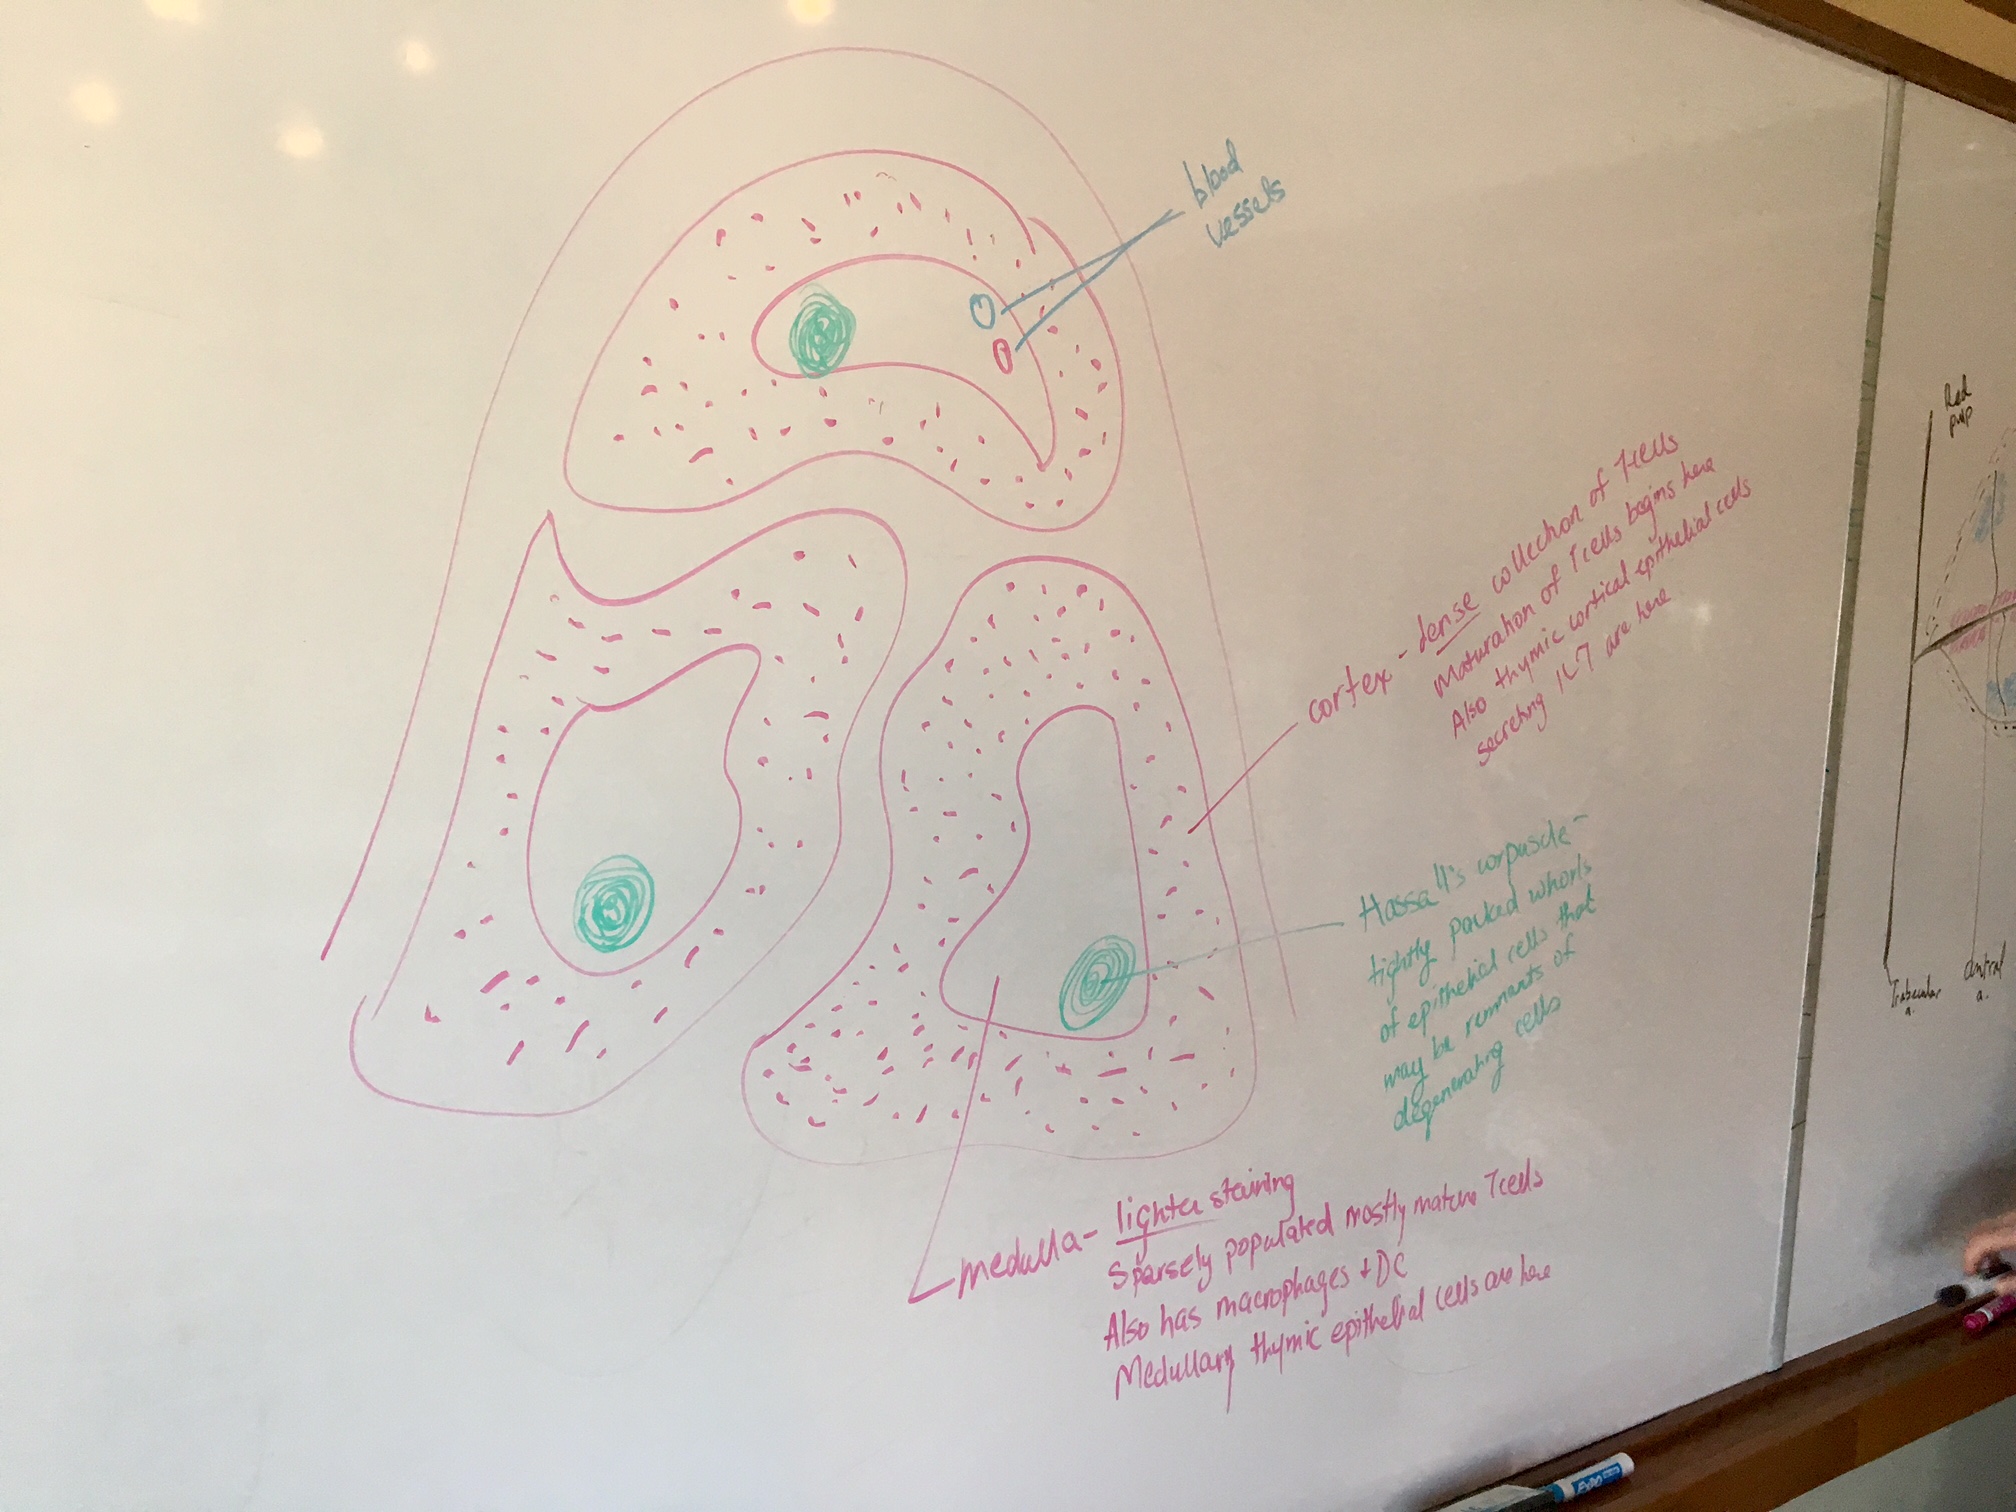 blood
vessels
cortex - dense collection of T cells
Maturation of T cells begins here
Also thymic cortical epithelial cells
secreting IL-7 are here
Hassall's corpuscle -
tightly packed whorls
of epithelial cells that
may be remnants of
degenerating cells
medulla - lighter staining
Sparsely populated mostly mature T cells
Also has macrophages + DC
Medullary thymic epithelial cells are here
Red
pulp
Trabecular
a.
Central
a.
EXPO